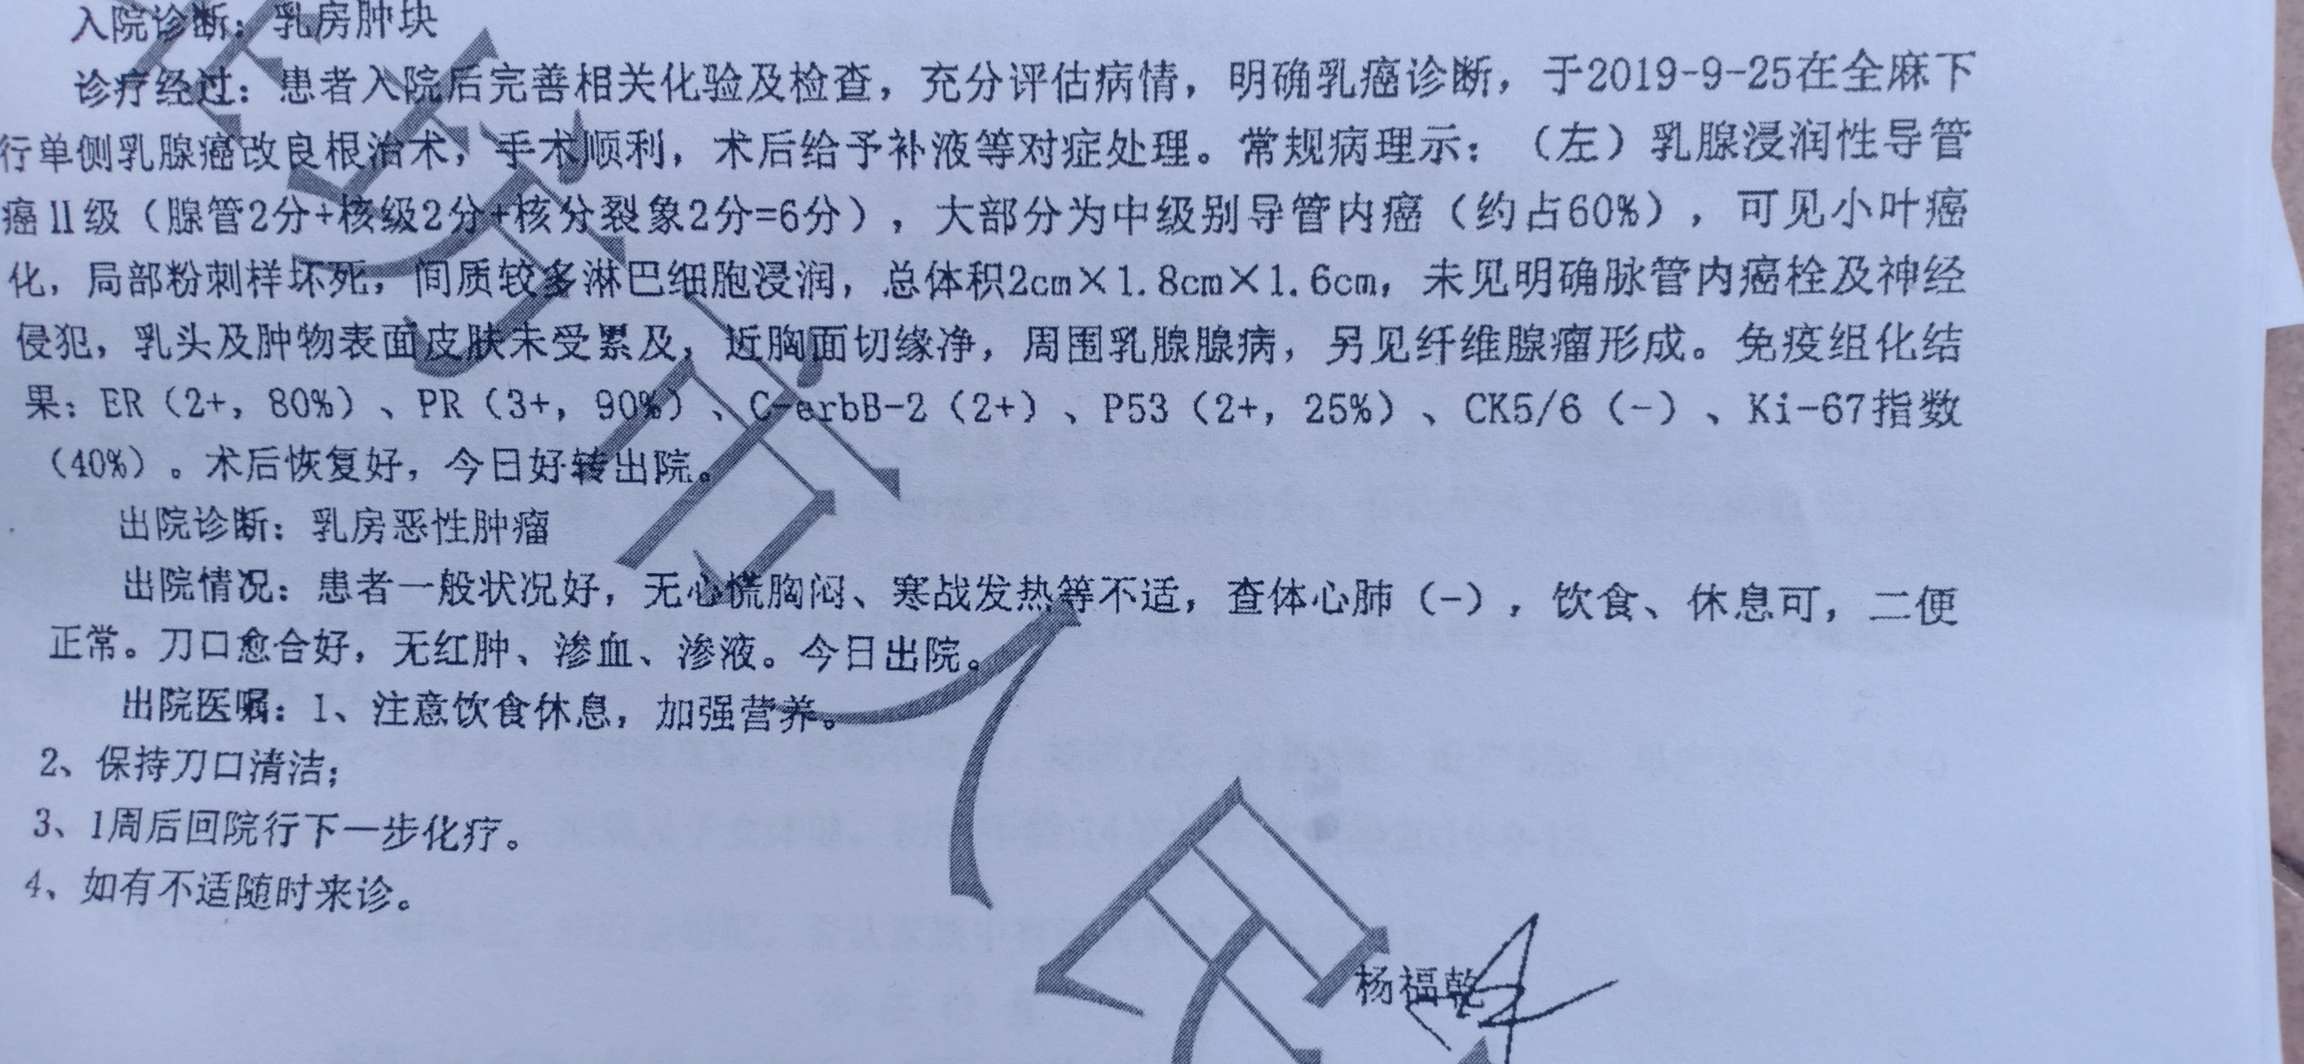 入院诊断：乳房肿块
诊疗经过：患者入院后完善相关化验及检查，充分评估病情，明确乳癌诊断，于2019-9-25在全麻下
行单侧乳腺癌改良根治术，手术顺利，术后给予补液等对症处理。常规病理示：（左）乳腺浸润性导管
癌Ⅱ级（腺管2分+核级2分+核分裂象2分=6分），大部分为中级别导管内癌（约占60%），可见小叶癌
化，局部粉刺样坏死，间质较多淋巴细胞浸润，总体积2cm×1.8cm×1.6cm，未见明确脉管内癌栓及神经
侵犯，乳头及肿物表面皮肤未受累及，近胸面切缘净，周围乳腺腺病，另见纤维腺瘤形成。免疫组化结
果：ER（2+，80%）、PR（3+，90%）、C-erbB-2（2+）、P53（2+，25%）、CK5/6（-）、Ki-67指数
（40%）。术后恢复好，今日好转出院。
出院诊断：乳房恶性肿瘤
出院情况：患者一般状况好，无心慌胸闷、寒战发热等不适，查体心肺（-），饮食、休息可，二便
正常。刀口愈合好，无红肿、渗血、渗液。今日出院。
出院医嘱：1、注意饮食休息，加强营养。
2、保持刀口清洁；
3、1周后回院行下一步化疗。
4、如有不适随时来诊。
杨福乾